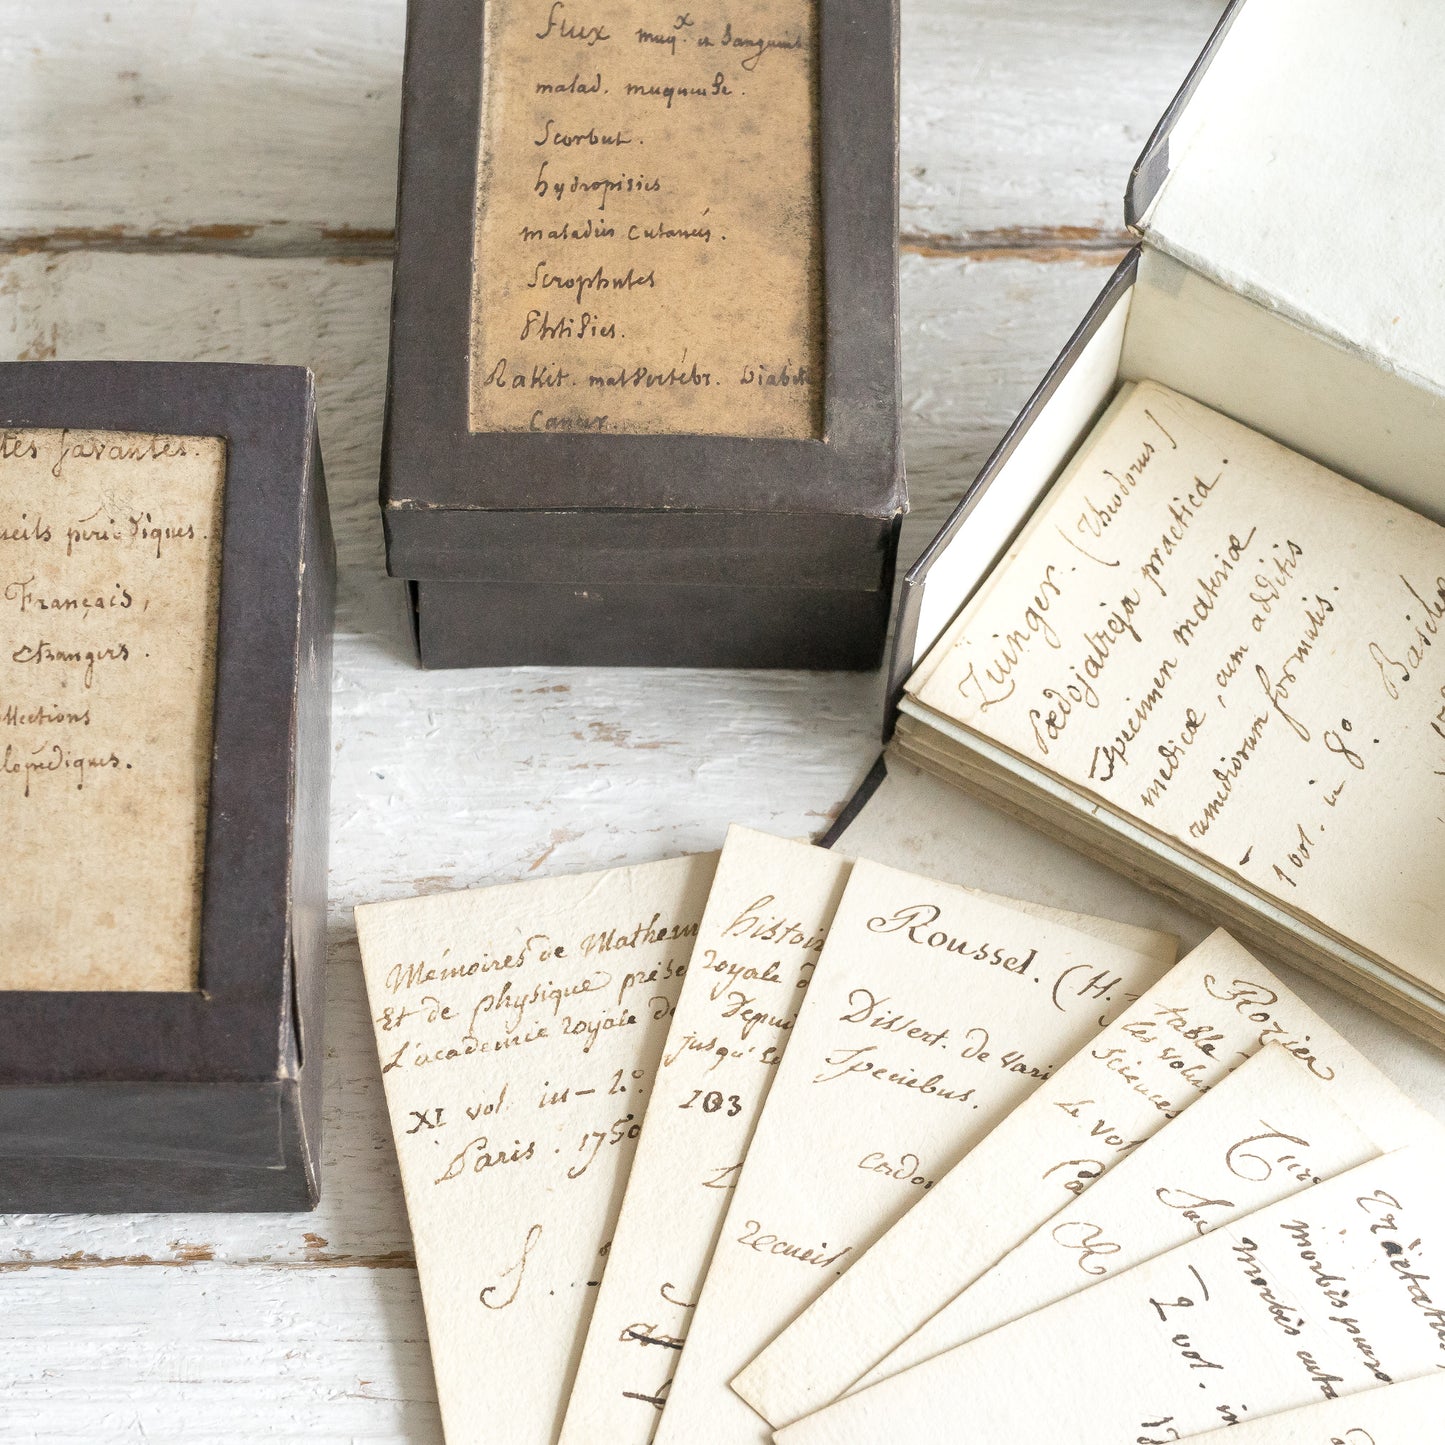 Flux muq.x et Sanguins
malad. muqueuse.
Scorbut.
hydropisies
maladies cutanées.
Scrophules
Phtisies.
Rakit. mal vertébr. Diabète
Cancer
tés savantes.
ueils périodiques.
Français,
etrangers.
ollections
clopédiques.
Zuinger. (Theodorus)
Pædojatreja practica.
Specimen materiæ
medicæ, cum additis
remediorum formulis.
1 vol. in 8º. Basileæ
Mémoires de Mathem
Et de physique prése
L'académie royale de
XI vol. in-4º
Paris. 1750
S....
histoir
royale d
Depui
jusqu'
103
recueil.
Roussel. (H.
Dissert. de vari
Speciebus.
cadom
Rozier
table
les volu
Sciences
Le vol
Pa
Tractatus
morbis
morbis cuta
2 vol. in